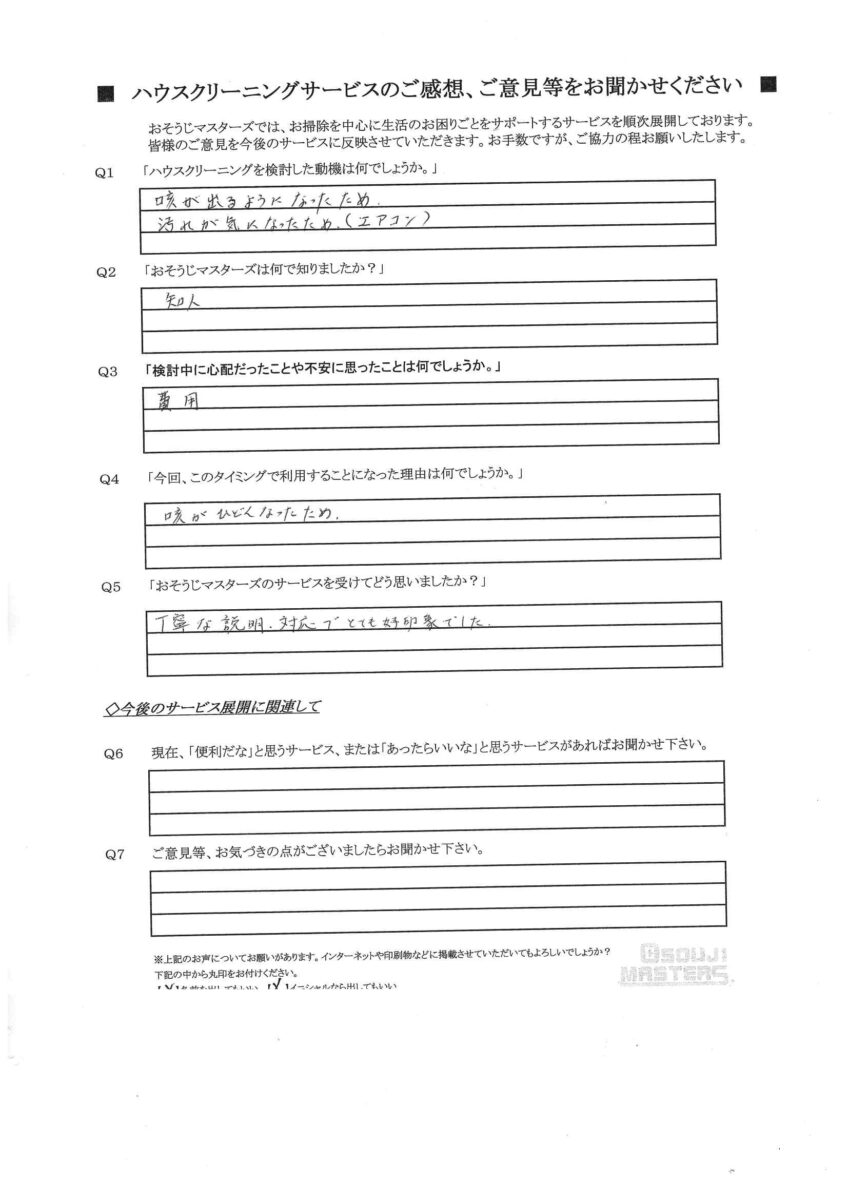 ■ ハウスクリーニングサービスのご感想、ご意見等をお聞かせください ■
おそうじマスターズでは、お掃除を中心に生活のお困りごとをサポートするサービスを順次展開しております。
皆様のご意見を今後のサービスに反映させていただきます。お手数ですが、ご協力の程お願いしたします。
Q1 「ハウスクリーニングを検討した動機は何でしょうか。」
咳が出るようになったため.
汚れが気になったため.(エアコン)
Q2 「おそうじマスターズは何で知りましたか？」
知人
Q3 「検討中に心配だったことや不安に思ったことは何でしょうか。」
費用
Q4 「今回、このタイミングで利用することになった理由は何でしょうか。」
咳がひどくなったため.
Q5 「おそうじマスターズのサービスを受けてどう思いましたか？」
丁寧な説明.対応でとても好印象でした.
◇今後のサービス展開に関連して
Q6 現在、「便利だな」と思うサービス、または「あったらいいな」と思うサービスがあればお聞かせ下さい。
Q7 ご意見等、お気づきの点がございましたらお聞かせ下さい。
※上記のお声についてお願いがあります。インターネットや印刷物などに掲載させていただいてもよろしいでしょうか？
下記の中から丸印をお付けください。
OSOUJI
MASTERS